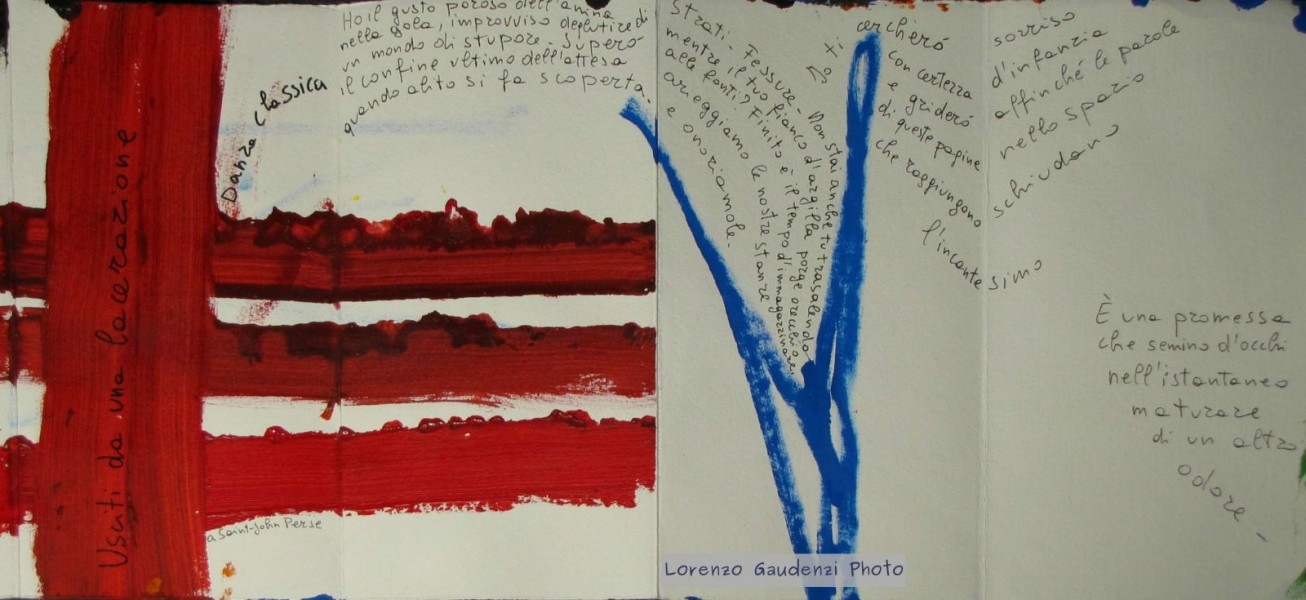 Usciti da una lacerazione
Danza classica
Ho il gusto poroso dell'anima
nella gola, improvviso deglutire di
un mondo di stupore. Superò
il confine ultimo dell'attesa
quando alito si fa scoperta.
a Saint-John Perse
Strati. Fessure. Non stai anche tu trasalendo
mentre il tuo fianco d'argilla porge orecchio
alle fonti? Finito è il tempo d'immagazzinare,
arieggiamo le nostre stanze
e onoriamole.
ti
cercherò
con certezza
e griderò
di queste pagine
che raggiungono
l'incante simo
sorriso
d'infanzia
affinché le parole
nello spazio
schiudano
È una promessa
che semino d'occhi
nell'istantaneo
maturare
di un altro
odore.
Lorenzo Gaudenzi Photo